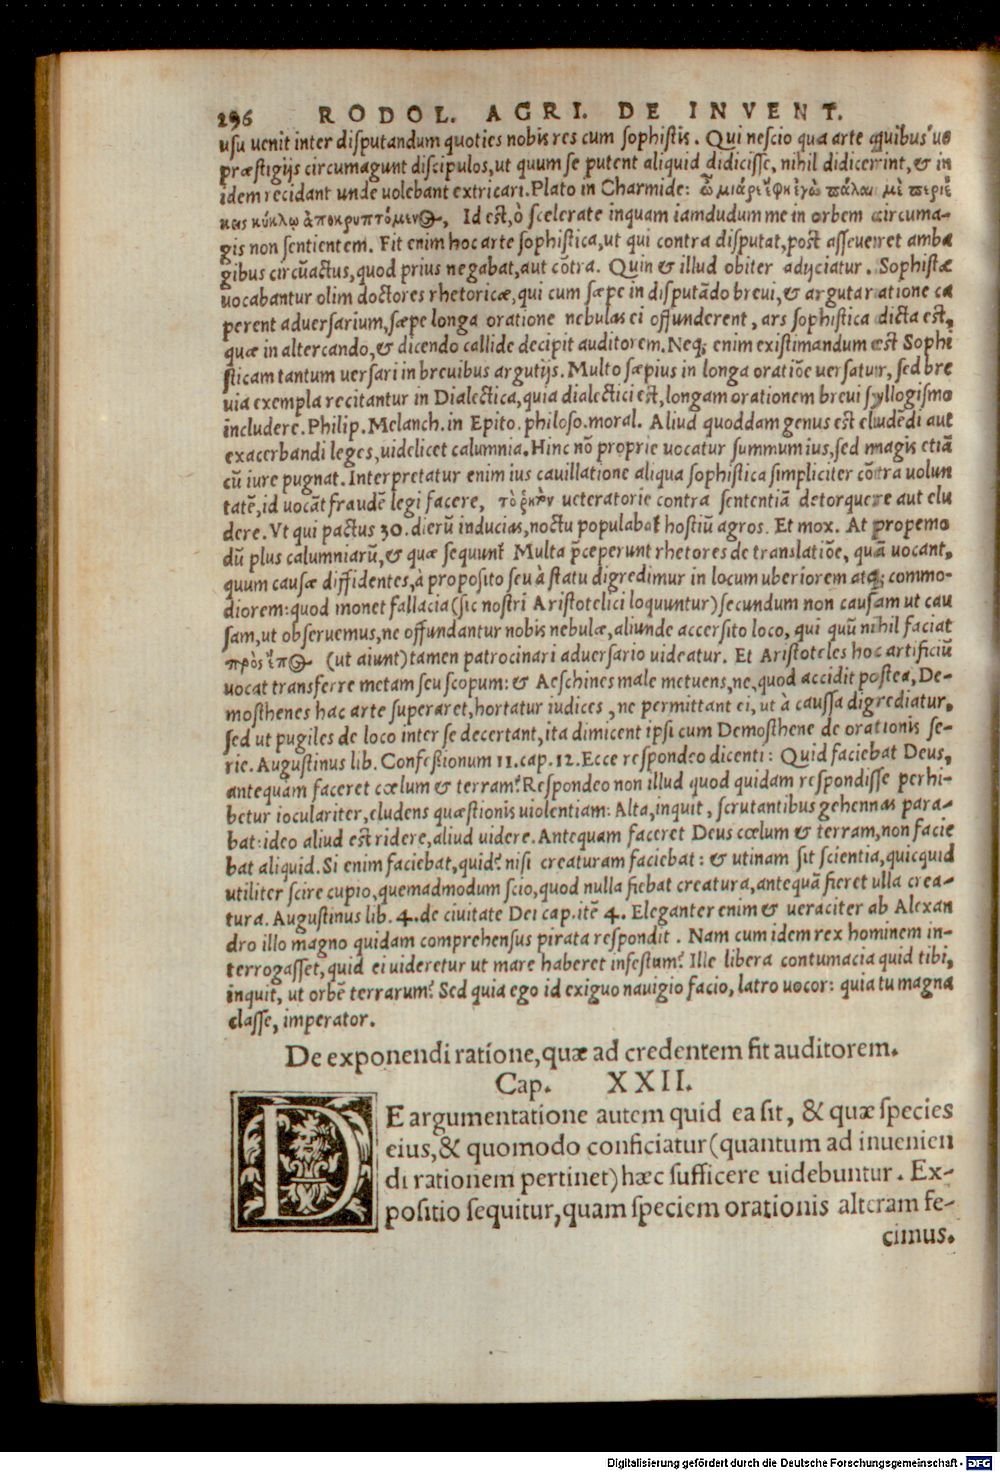 296 RODOL. AGRI. DE INVENT.
usu uenit inter disputandum quoties nobis res cum sophistis. Qui nescio qua arte quibus'ue
præstigijs circumagunt discipulos, ut quum se putent aliquid didicisse, nihil didicerint, & in
idem recidant unde uolebant extricari. Plato in Charmide: ὦ μιάρε ἔφην ἐγὼ πάλαι μὲ περιέ
κεις κύκλῳ ἀποκρυπτόμενος, Id est, ò scelerate inquam iamdudum me in orbem circuma-
gis non sentientem. Fit enim hoc arte sophistica, ut qui contra disputat, post asseueret amba
gibus circũactus, quod prius negabat, aut cõtra. Quin & illud obiter adijciatur. Sophistæ
uocabantur olim doctores rhetoricæ, qui cum sæpe in disputãdo breui, & arguta ratione ca
perent aduersarium, sæpe longa oratione nebulas ei offunderent, ars sophistica dicta est,
quæ in altercando, & dicendo callide decipit auditorem. Neq; enim existimandum est Sophi
sticam tantum uersari in breuibus argutijs. Multo sæpius in longa oratiõe uersatur, sed bre
uia exempla recitantur in Dialectica, quia dialectici est, longam orationem breui syllogismo
includere. Philip. Melanch. in Epito. philoso. moral. Aliud quoddam genus est eludẽdi aut
exacerbandi leges, uidelicet calumnia. Hinc nõ proprie uocatur summum ius, sed magis etiã
cũ iure pugnat. Interpretatur enim ius cauillatione aliqua sophistica simpliciter cõtra uolun
tatẽ, id uocãt fraudẽ legi facere, τὸ ῥητὸν ueteratorie contra sententiã detorquere aut elu
dere. Vt qui pactus 30. dierũ inducias, noctu populabat hostiũ agros. Et mox. At propemo
dũ plus calumniarũ, & quæ sequunt̃ Multa p̃ceperunt rhetores de translatiõe, quã uocant,
quum causæ diffidentes, à proposito seu à statu digredimur in locum uberiorem atq; commo-
diorem: quod monet fallacia (sic nostri Aristotelici loquuntur) secundum non causam ut cau
sam, ut obseruemus, ne offundantur nobis nebulæ, aliunde accersito loco, qui quũ nihil faciat
πρὸς ἔπος (ut aiunt) tamen patrocinari aduersario uideatur. Et Aristoteles hoc artificiũ
uocat transferre metam seu scopum: & Aeschines male metuens, ne, quod accidit postea, De-
mosthenes hac arte superaret, hortatur iudices, ne permittant ei, ut à caussa digrediatur,
sed ut pugiles de loco inter se decertant, ita dimicent ipsi cum Demosthene de orationis se-
rie. Augustinus lib. Confessionum 11. cap. 12. Ecce respondeo dicenti: Quid faciebat Deus,
antequam faceret cœlum & terram? Respondeo non illud quod quidam respondisse perhi-
betur ioculariter, eludens quæstionis uiolentiam: Alta, inquit, scrutantibus gehennas para-
bat: ideo aliud est ridere, aliud uidere. Antequam faceret Deus cœlum & terram, non facie
bat aliquid. Si enim faciebat, quid? nisi creaturam faciebat: & utinam sit scientia, quicquid
utiliter scire cupio, quemadmodum scio, quod nulla fiebat creatura, antequã fieret ulla crea-
tura. Augustinus lib. 4. de ciuitate Dei cap. itẽ 4. Eleganter enim & ueraciter ab Alexan
dro illo magno quidam comprehensus pirata respondit. Nam cum idem rex hominem in-
terrogasset, quid ei uideretur ut mare haberet infestum? Ille libera contumacia quid tibi,
inquit, ut orbẽ terrarum? Sed quia ego id exiguo nauigio facio, latro uocor: quia tu magna
classe, imperator.
De exponendi ratione, quæ ad credentem fit auditorem.
Cap. XXII.
DE argumentatione autem quid ea sit, & quæ species
eius, & quomodo conficiatur (quantum ad inuenien
di rationem pertinet) hæc sufficere uidebuntur. Ex-
positio sequitur, quam speciem orationis alteram fe-
cimus.
Digitalisierung gefördert durch die Deutsche Forschungsgemeinschaft - DFG